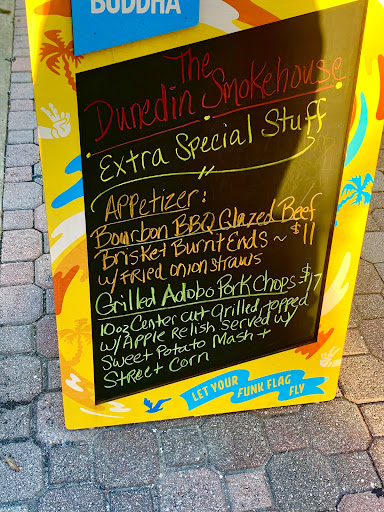 BUDDHA
The
Dunedin Smokehouse
Extra Special Stuff
Appetizer:
Bourbon BBQ Glazed Beef
Brisket Burnt Ends ~ $11
w/ Fried onion straws
Grilled Adobo Pork Chops $17
10oz Center cut grilled, topped
w/ Apple Relish Served w/
Sweet Potato Mash +
Street Corn
LET YOUR FUNK FLAG FLY